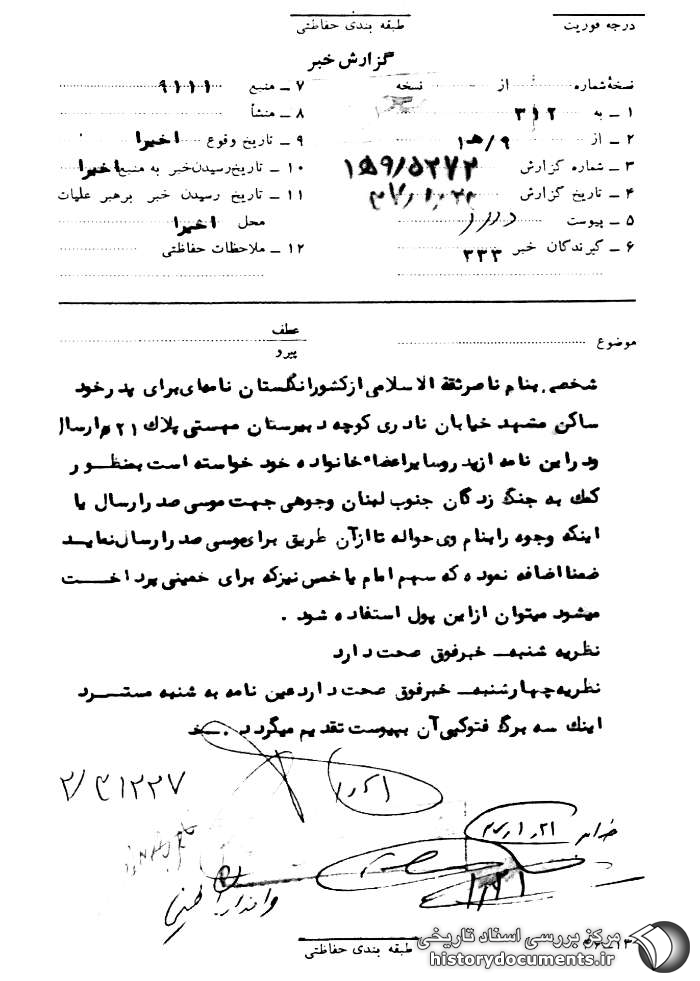 درجه فوریت
طبقه بندی حفاظتی
گزارش خبر
نسخهٔ شماره از نسخه
۱ ـ به ۳۱۲
۲ ـ از ۹/هـ۱
۳ ـ شماره گزارش ۱۵۹/۵۲۷۲
۴ ـ تاریخ گزارش
۵ ـ پیوست دارد
۶ ـ گیرندگان خبر ۳۳۳
۷ ـ منبع ۹۱۱۱
۸ ـ منشأ
۹ ـ تاریخ وقوع اخیرا
۱۰ ـ تاریخ رسیدن خبر به منبع اخیرا
۱۱ ـ تاریخ رسیدن خبر برهبر علیات
محل اخیرا
۱۲ ـ ملاحظات حفاظتی
موضوع
عطف
پیرو
شخصی بنام ناصر ثقة الاسلامی از کشور انگلستان نامه‌ای برای پدر خود
ساکن مشهد خیابان نادری کوچه دبیرستان مهستی پلاک ۲۱ ارسال
ودراین نامه از پدر و سایر اعضاء خانواده خود خواسته است بمنظور
کمک به جنگ زدگان جنوب لبنان وجوهی جهت موسی صدر ارسال یا
اینکه وجوه را بنام وی حواله تا از آن طریق برای موسی صدر ارسال نمایــد
ضمنا اضافه نموده که سهم امام یا خمس نیز که برای خمینی پرداخــت
میشود میتوان از این پول استفاده شود .
نظریه شنبه‍ــ خبرفوق صحت دارد
نظریه چهارشنبه‍ــ خبرفوق صحت دارد عین نامه به شنبه مستــرد
اینک سه برگ فتوکپی آن بپیوست تقدیم میگردد .
۲/۴۱۲۲۷
طبقه بندی حفاظتی
مرکز بررسی اسناد تاریخی
historydocuments.ir